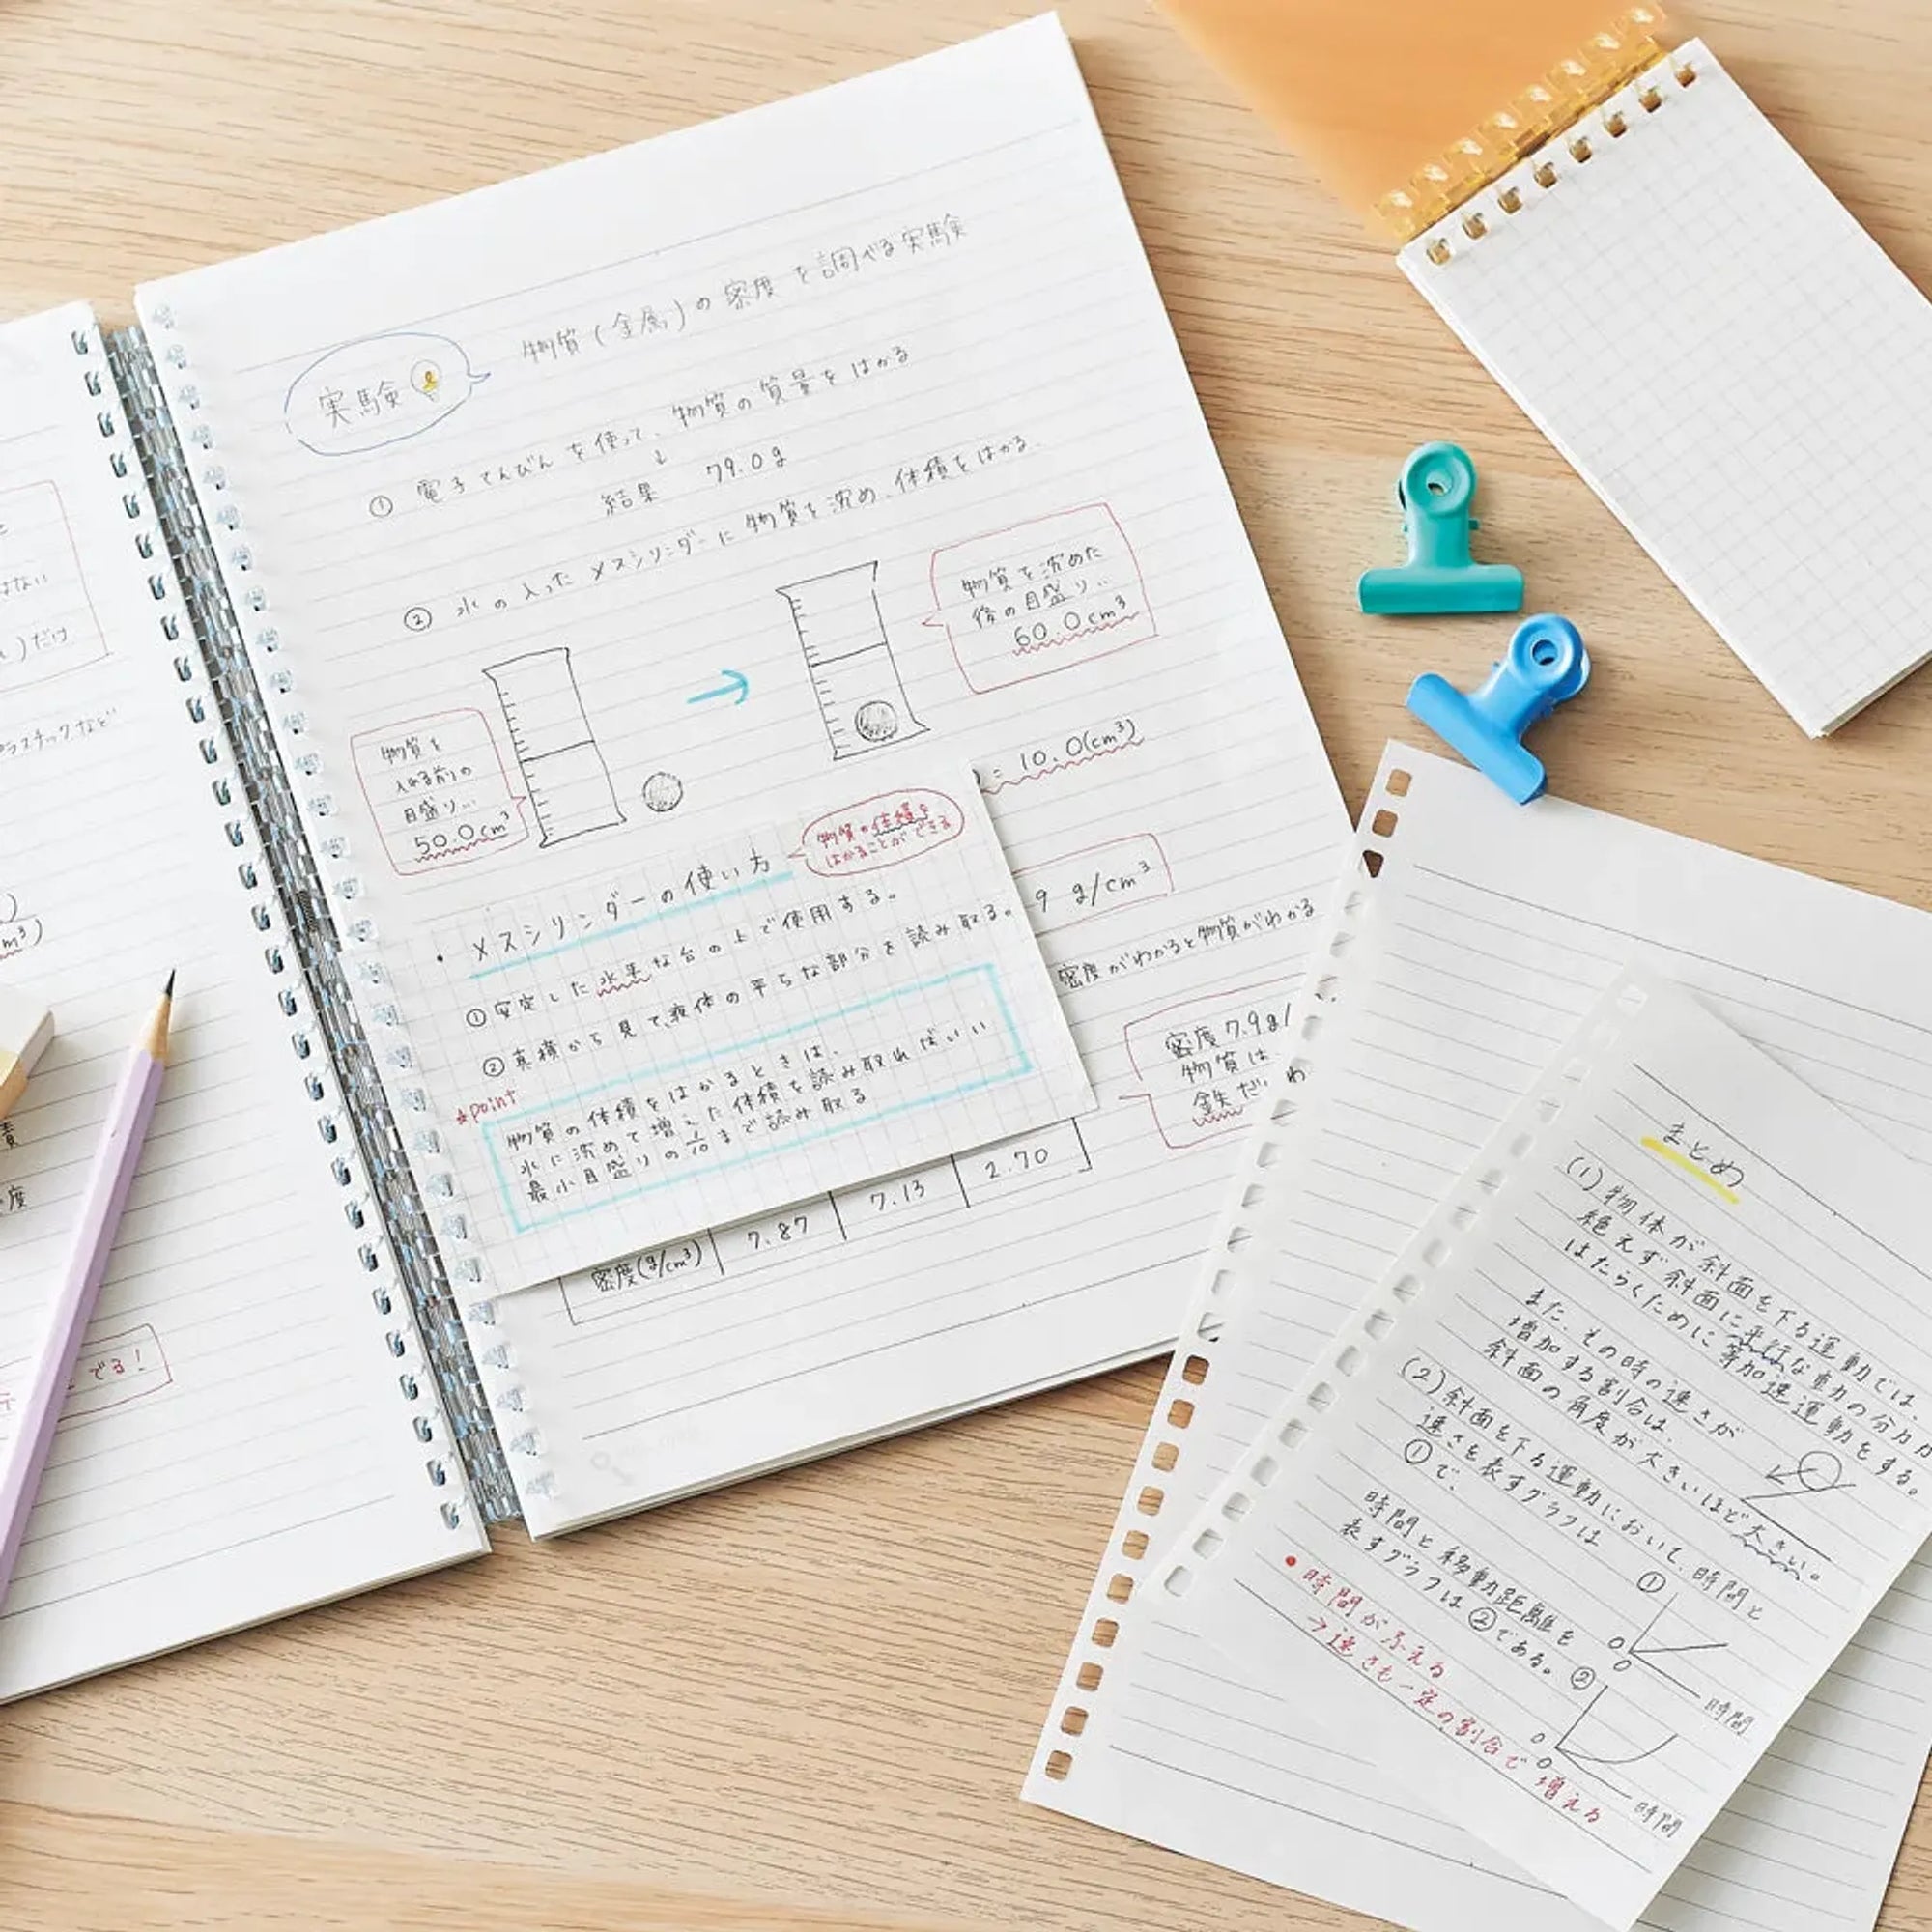 はない
)だけ
プラスチックなど
m³)
度
でる!
実験
物質(金属)の密度を調べる実験
① 電子てんびんを使って、物質の質量をはかる
↓
結果 79.0g
② 水の入ったメスシリンダーに物質を沈め、体積をはかる.
物質を
入れる前の
目盛り…
50.0cm³
→
物質を沈めた
後の目盛り…
60.0cm³
= 10.0(cm³)
9 g/cm³
密度がわかると物質がわかる
密度7.9g/
物質は
鉄だ
わ
物質の体積を
はかることができる
・メスシリンダーの使い方
①安定した水平な台の上で使用する。
②真横から見て、液体の平らな部分を読み取る。
*point
物質の体積をはかるときは、
水に沈めて増えた体積を読み取ればいい
最小目盛りの1/10まで読み取る
密度(g/cm³) 7.87 7.13 2.70
まとめ
(1)物体が斜面を下る運動では、
絶えず斜面に平行な重力の分力が
はたらくために等加速運動をする。
また、その時の速さが
増加する割合は、
斜面の角度が大きいほど大きい。
(2)斜面を下る運動において、時間と
速さを表すグラフは
①で、
時間と移動距離を
表すグラフは②である。
• 時間がふえる
→速さも一定の割合で増える
①
0
0
時間
②
0
0
時間